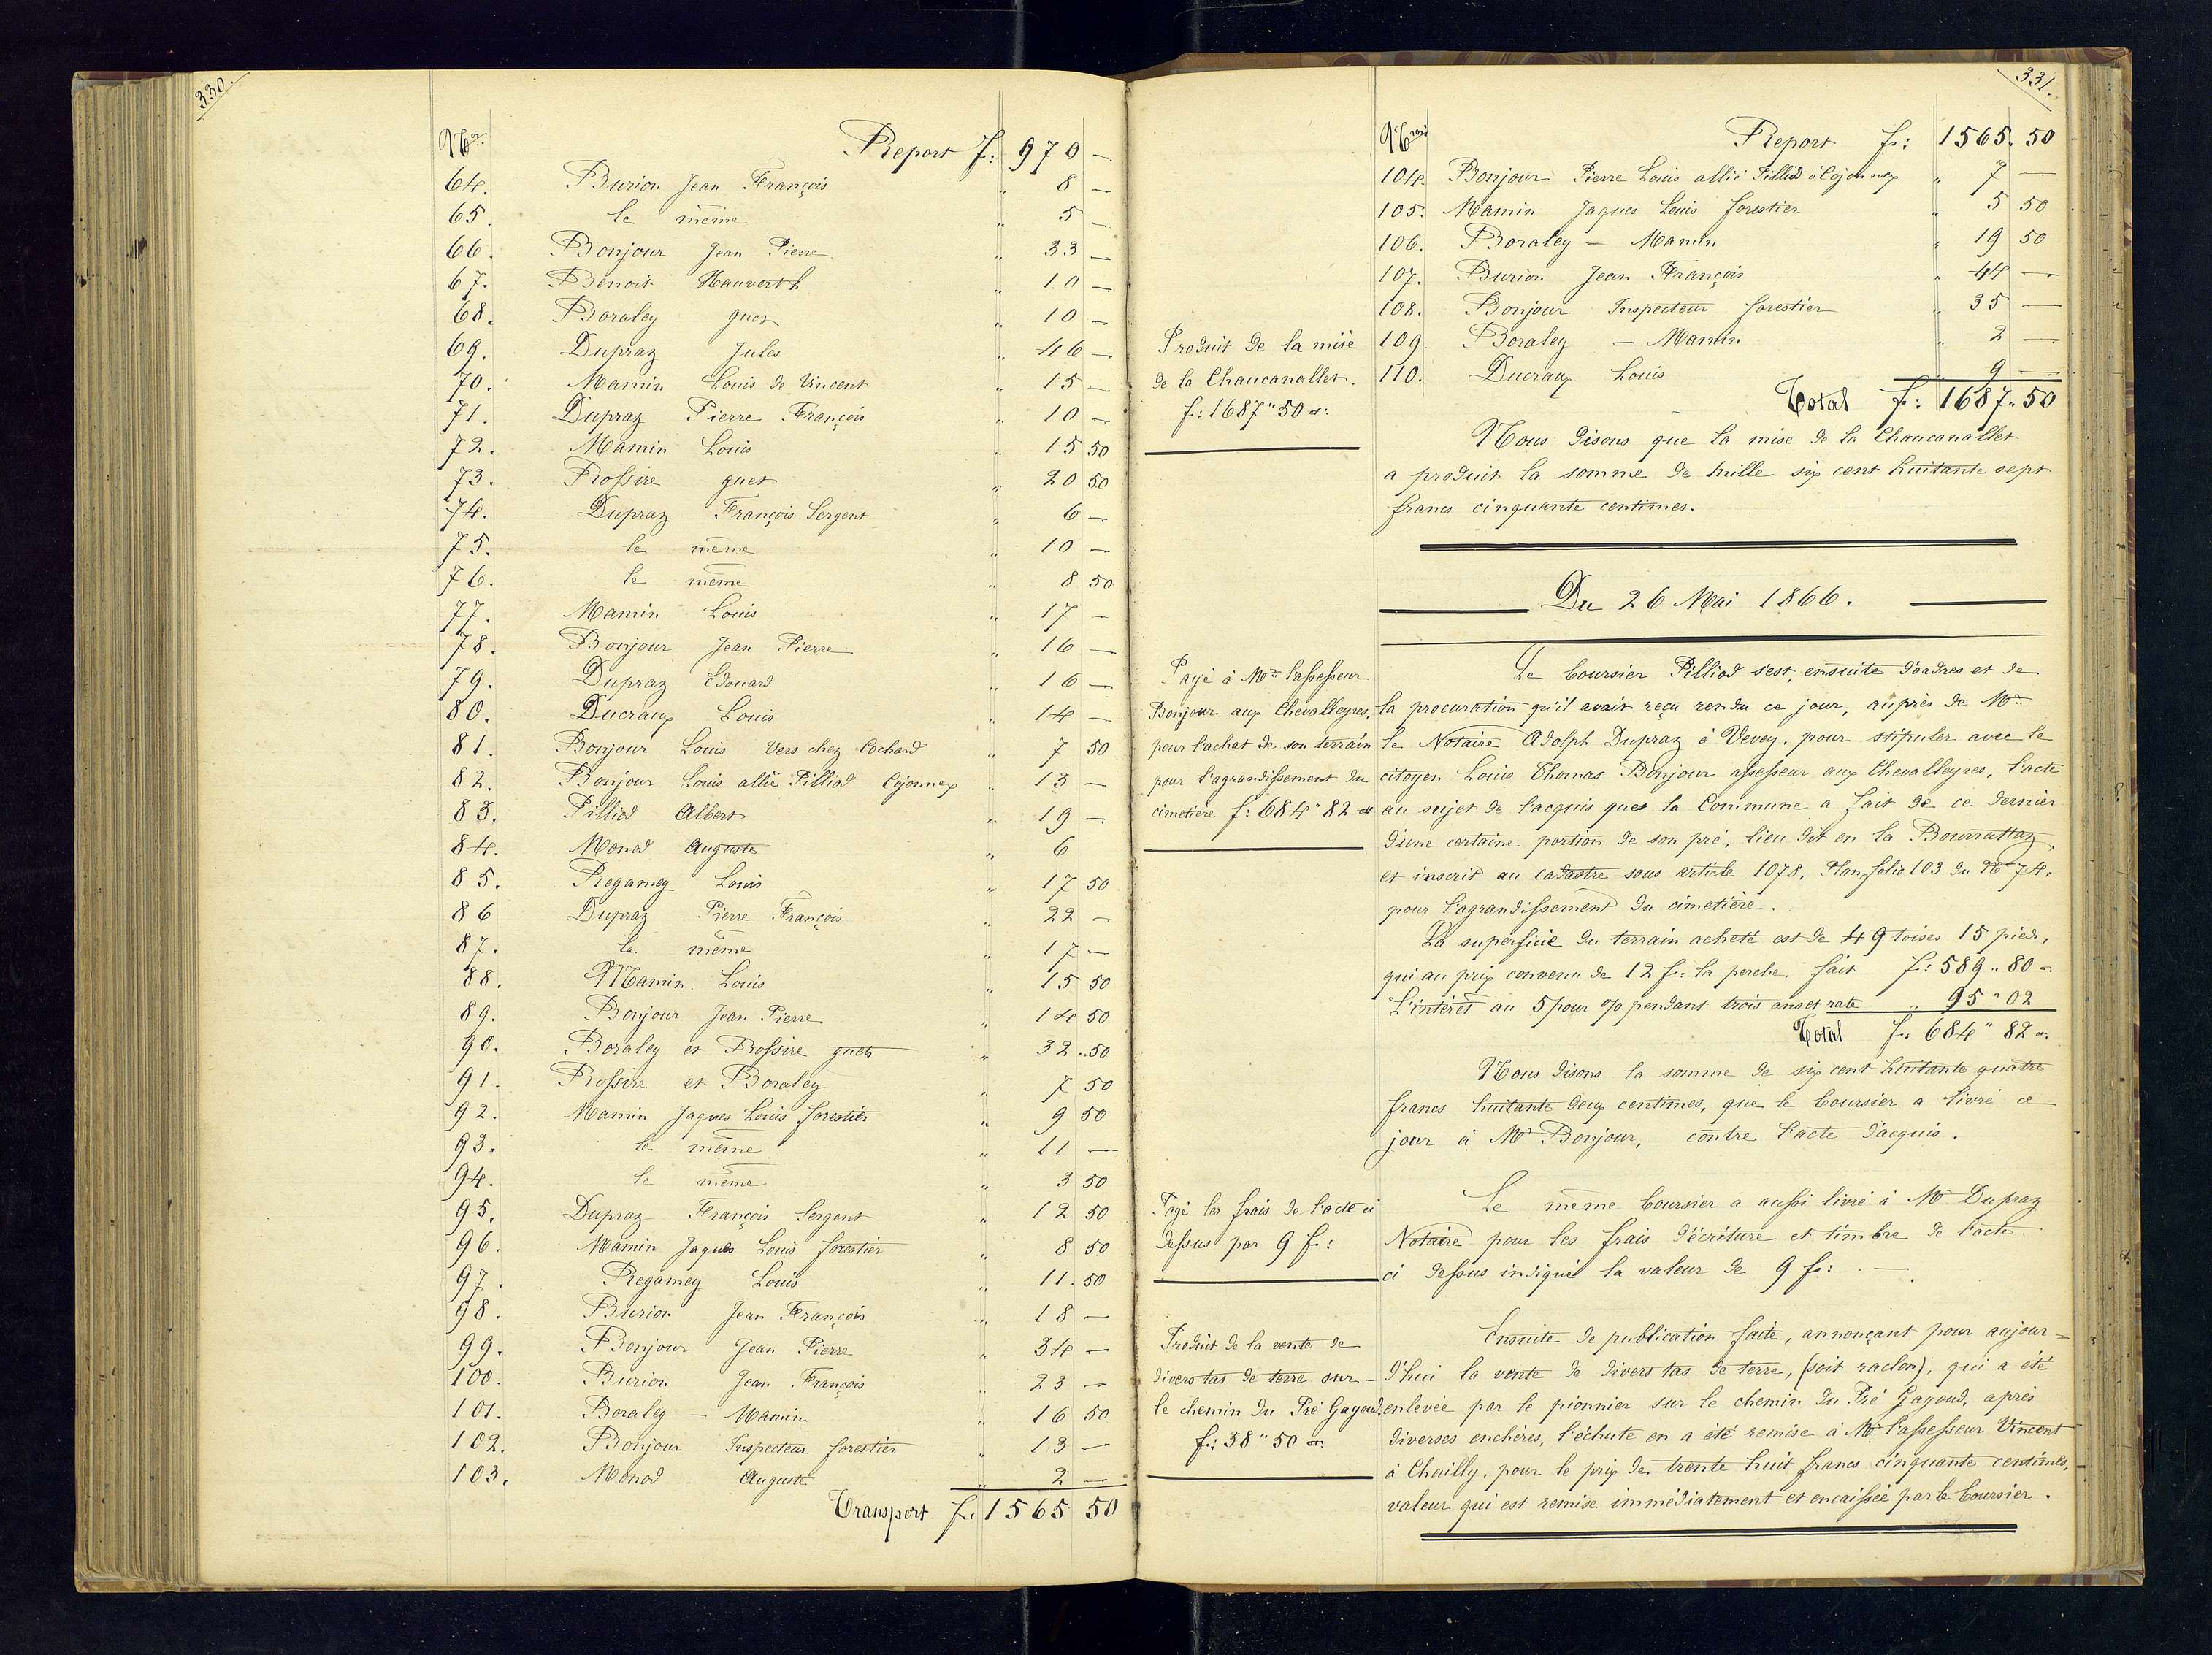 330.
Nos
Report f: 970 —
64. Burion Jean François " 8 —
65. le même " 5 —
66. Bonjour Jean Pierre " 33 —
67. Benoit Hauverth " 10 —
68. Boraley guet " 10 —
69. Dupraz Jules " 46 —
70. Mamin Louis de Vincent " 15 —
71. Dupraz Pierre François " 10 —
72. Mamin Louis " 15 50
73. Rossire guet " 20 50
74. Dupraz François Sergent " 6 —
75. le même " 10 —
76. le même " 8 50
77. Mamin Louis " 17 —
78. Bonjour Jean Pierre " 16 —
79. Dupraz Edouard " 16 —
80. Ducraux Louis " 14 —
81. Bonjour Louis Vers chez Cochard " 7 50
82. Bonjour Louis allié Pilliod Cojonnex " 13 —
83. Pilliod Albert " 19 —
84. Monod Auguste " 6
85. Regamey Louis " 17 50
86 Dupraz Pierre François " 22 —
87. le même " 17 —
88. Mamin Louis " 15 50
89. Bonjour Jean Pierre " 14 50
90. Boraley et Rossire guets " 32 50
91. Rossire et Boraley " 7 50
92. Mamin Jaques Louis forestier " 9 50
93. le même " 11 —
94. le même " 3 50
95. Dupraz François Sergent " 12 50
96. Mamin Jaques Louis forestier " 8 50
97. Regamey Louis " 11. 50
98. Burion Jean François " 18 —
99. Bonjour Jean Pierre " 34 —
100. Burion Jean François " 23 —
101. Boraley — Mamin " 16 50
102. Bonjour Inspecteur forestier " 13 —
103. Monod Auguste " 2 —
Transport f. 1565 50
331.
Nros
Report f: 1565. 50
104. Bonjour Pierre Louis allié Pilliod à Cojonnex " 7 —
105. Mamin Jaques Louis forestier " 5 50
106. Boraley — Mamin " 19 50
107. Burion Jean François " 44 —
108. Bonjour Inspecteur forestier " 35 —
109 Boraley — Mamin " 2 —
110. Ducraux Louis " 9 —
Total f: 1687. 50
Produit de la mise
de la Chaucanallet.
f: 1687" 50 c:
Nous disons que la mise de la Chaucanallet
a produit la somme de mille six cent huitante sept
francs cinquante centimes.
Du 26 Mai 1866.
Payé à Mr. l'assesseur
Bonjour aux Chevalleyres,
pour l'achat de son terrain
pour l'agrandissement du
cimetière f: 684" 82 c
Le boursier Pilliod s'est, ensuite d'ordres et de
la procuration qu'il avait reçu rendu ce jour, auprès de Mr.
le Notaire Adolph Dupraz à Vevey, pour stipuler avec le
citoyen Louis Thomas Bonjour assesseur aux Chevalleyres, l'acte
au sujet de l'acquis que la Commune a fait de ce dernier
d'une certaine portion de son pré, lieu dit en la Bourrattaz,
et inscrit au cadastre sous article 1078, Plan folio 103 du No 74,
pour l'agrandissement du cimetière.
La superficie du terrain acheté est de 49 toises 15 pieds,
qui au prix convenu de 12 f: la perche, fait f: 589 " 80 c
L'intérêt au 5 pour % pendant trois ans et rate " 95 " 02
Total f. 684 " 82 c.
Nous disons la somme de six cent huitante quatre
francs huitante deux centimes, que le boursier a livré ce
jour à Mr Bonjour, contre l'acte d'acquis.
Payé les frais de l'acte ci
dessus par 9 f:
Le même boursier a aussi livré à Mr Dupraz
Notaire pour les frais d'écriture et timbre de l'acte
ci dessus indiqué la valeur de 9 f: —.
Produit de la vente de
divers tas de terre sur
le chemin du Pré Gagoud,
f: 38 " 50 c
Ensuite de publication faite, annonçant pour aujour=
d'hui la vente de divers tas de terre, (soit raclon), qui a été
enlevée par le pionnier sur le chemin du Pré Gagoud, après
diverses enchères, l'échute en a été remise à Mr l'assesseur Vincent
à Chailly, pour le prix de trente huit francs cinquante centimes,
valeur qui est remise immédiatement et encaissée par le boursier.